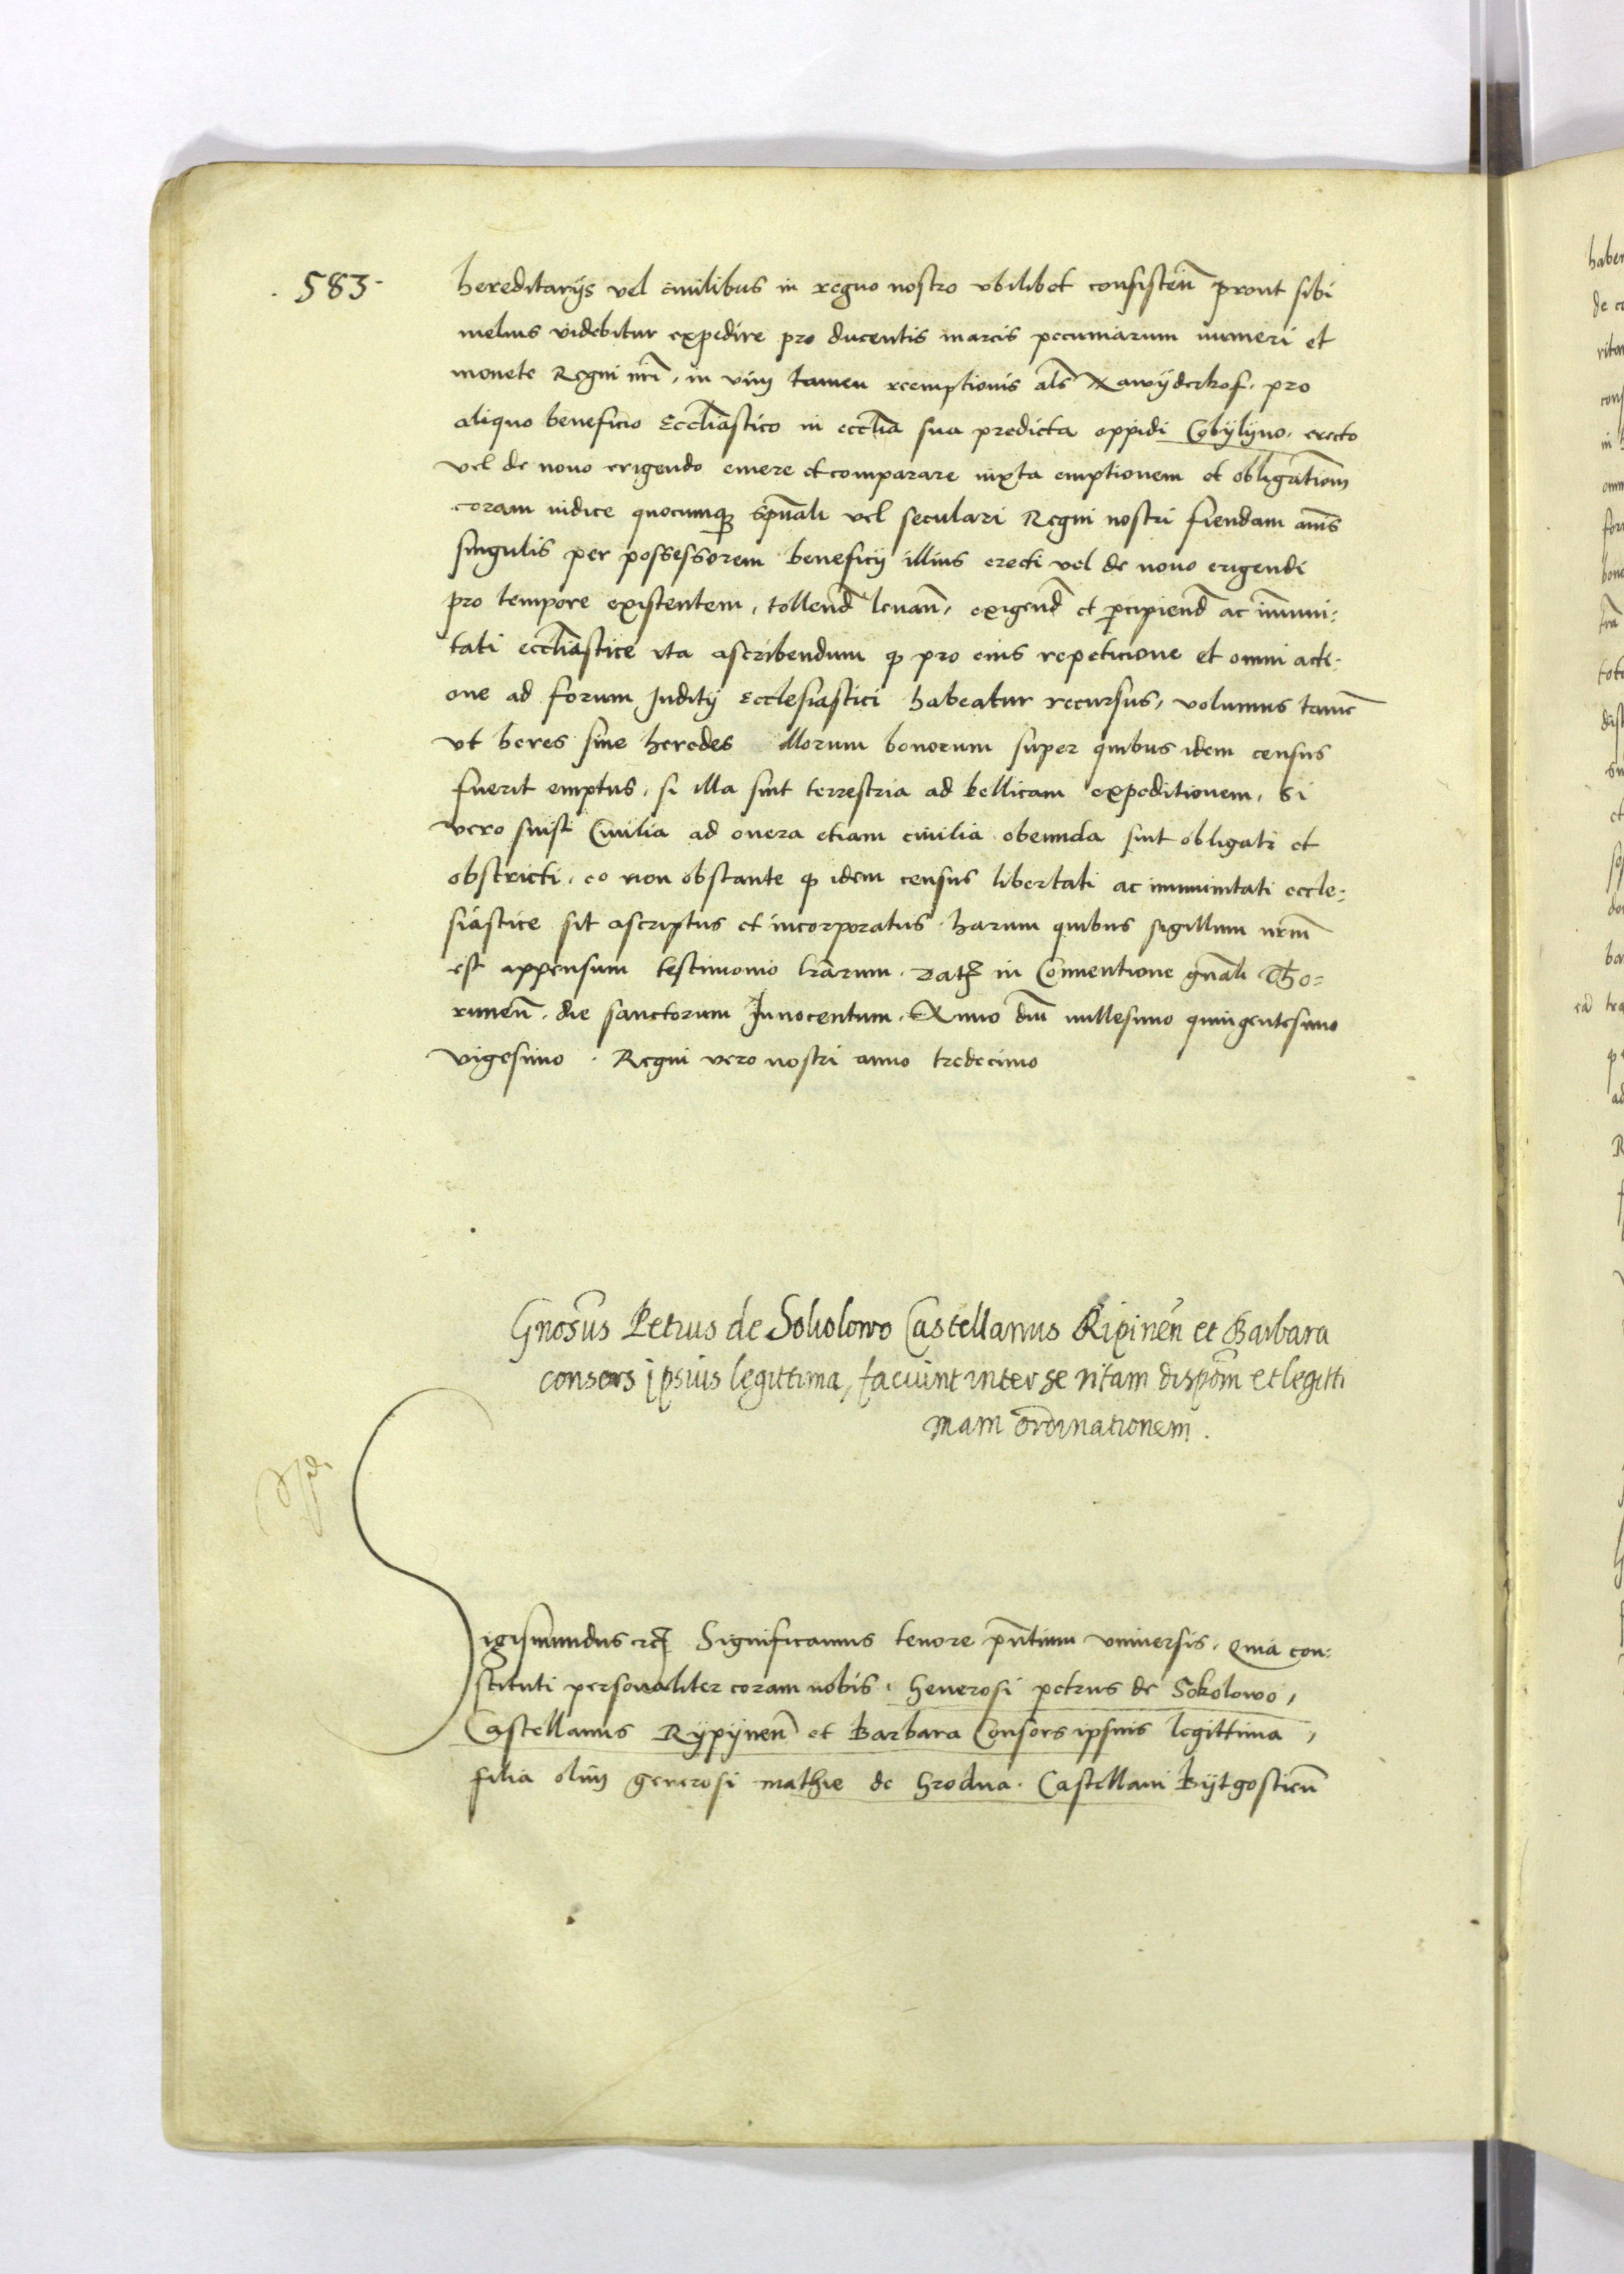 583
hereditarijs vel civilibus in regno nostro ubilibet consisteñ prout sibi
melius videbitur expedire pro ducentis marcis pecuniarum numeri et
monete Regni nr̃i, in vim tamen reemptionis als̃ pro
aliquo beneficio Eccl̃iastico in eccl̃ia sua predicta oppidi Cobÿlÿno, erecto
vel de novo erigendo emere et comparare iuxta emptionem et obligatiom̃
coram iudice quocumq̃ sp̃uali vel seculari Regni nostri fiendam anis̃
singulis per possessorem beneficij illius erecti vel de novo erigendi
pro tempore existentem, tollend̃ levañ, exigend̃ et p̃cipiend̃ ac im̃uni:
tati eccl̃iastice ita ascribendum q̃ pro eius repeticione et omni acti:
one ad forum Juditij Ecclesiastici habeatur recursus, volumus tamẽ
ut heres sive heredes illorum bonorum super quibus idem census
fuerit emptus, si illa sint terrestria ad bellicam expeditionem, Si
vero sint Civilia ad onera etiam civilia obeunda sint obligati et
obstricti, eo non obstante q̃ idem census libertati ac immunitati eccle:
siastice sit ascriptus et incorporatus. harum quibus sigillum nrm̃
est appensum testimonio lr̃arum. Dat̃ in Conventione gñali Tho=
runeñ, die sanctorum Innocentum. Anno dñi millesimo quingentesimo
vigesimo. Regni vero nostri anno tredecimo
Gnos̃us Petrus de Sokolowo Castellanus Ripineñ et Barbara
consors ipsius legittima, faciunt inter se ritam dispõm et legitti
mam ordinationem.
igismundus rc̃ Significamus tenore pñtium universis, Quia con:
stituti personaliter coram nobis, Generosi petrus de Sokolowo,
Castellanus Rÿpÿneñ et Barbara Consors ipsius legittima,
filia olim generosi mathie de Grodna. Castellani Bÿtgostieñ